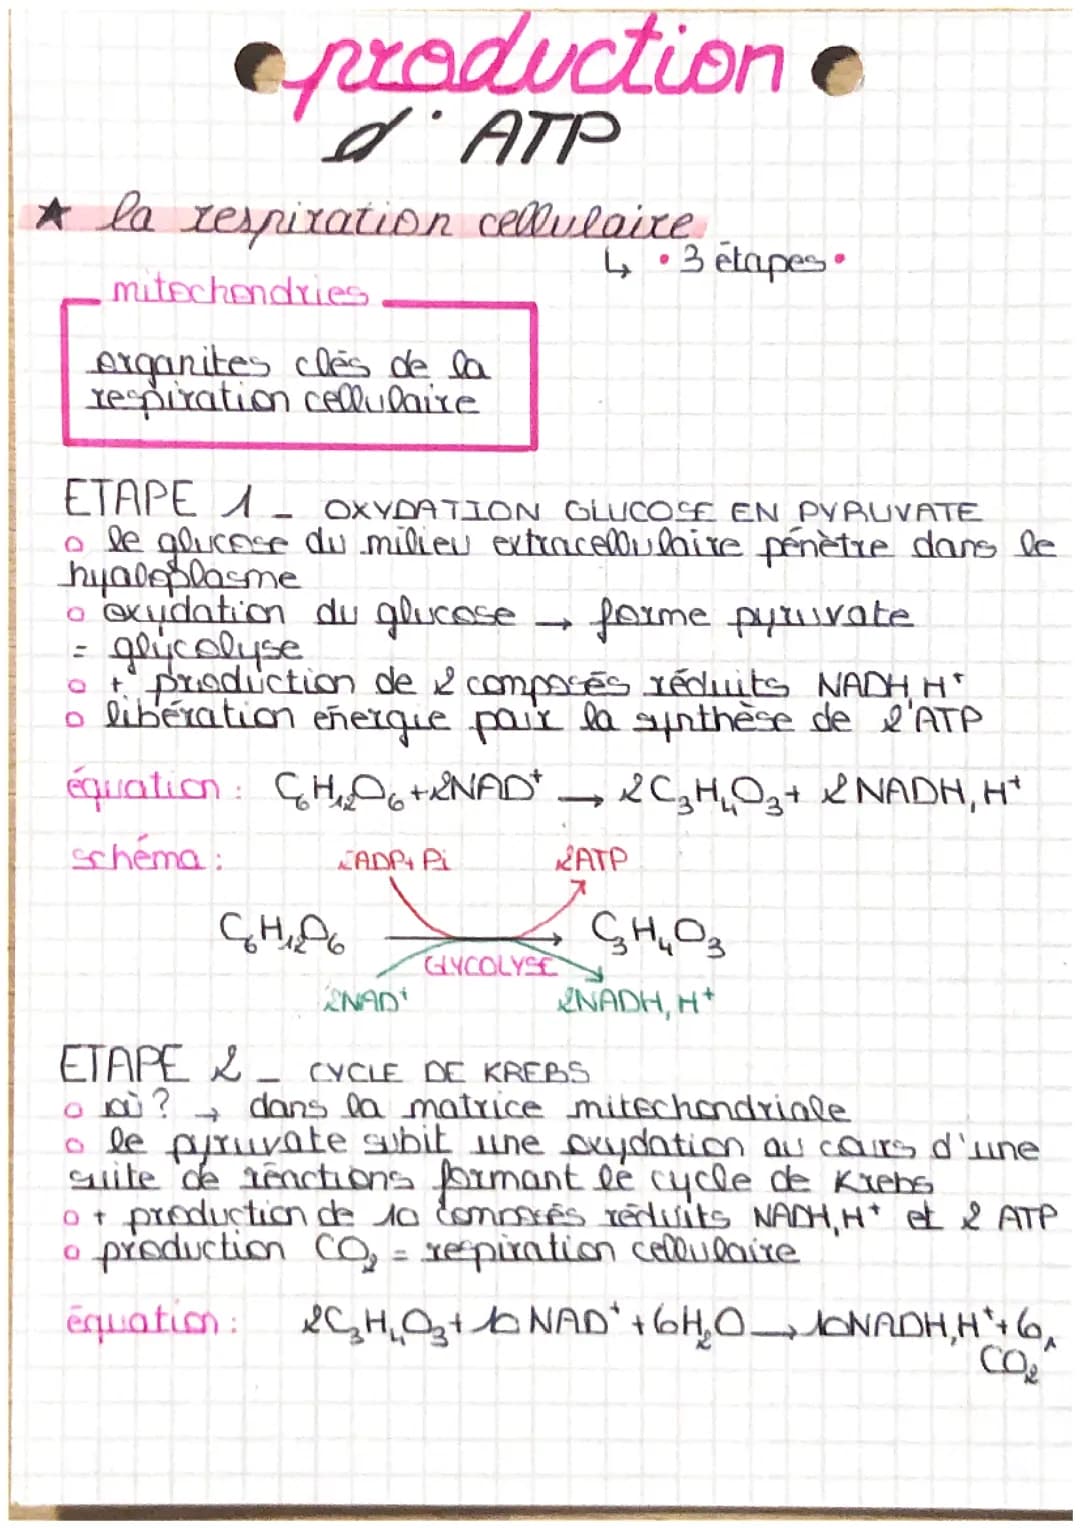 production
d'ATP
★ la respiration cellulaire
↳ • 3 étapes •
mitochondries
organites clés de la
respiration cellulaire
ETAPE 1 _ OXYDATION GLUCOSE EN PYRUVATE
o le glucose du milieu extracellulaire pénètre dans le
hyaloplasme
o oxydation du glucose → forme pyruvate
= glycolyse
o + production de 2 composés réduits NADH, H⁺
o libération énergie pour la synthèse de l'ATP
équation : C₆H₁₂O₆ + 2NAD⁺ → 2C₃H₄O₃ + 2NADH, H⁺
schéma :
2ADP + Pi 2ATP
C₆H₁₂O₆ C₃H₄O₃
GLYCOLYSE
2NAD⁺ 2NADH, H⁺
ETAPE 2 _ CYCLE DE KREBS
o où ? → dans la matrice mitochondriale
o le pyruvate subit une oxydation au cours d'une
suite de réactions formant le cycle de Krebs
o + production de 10 composés réduits NADH, H⁺ et 2 ATP
o production CO₂ = respiration cellulaire
équation : 2C₃H₄O₃ + 10 NAD⁺ + 6H₂O → 10NADH, H⁺ + 6
CO₂